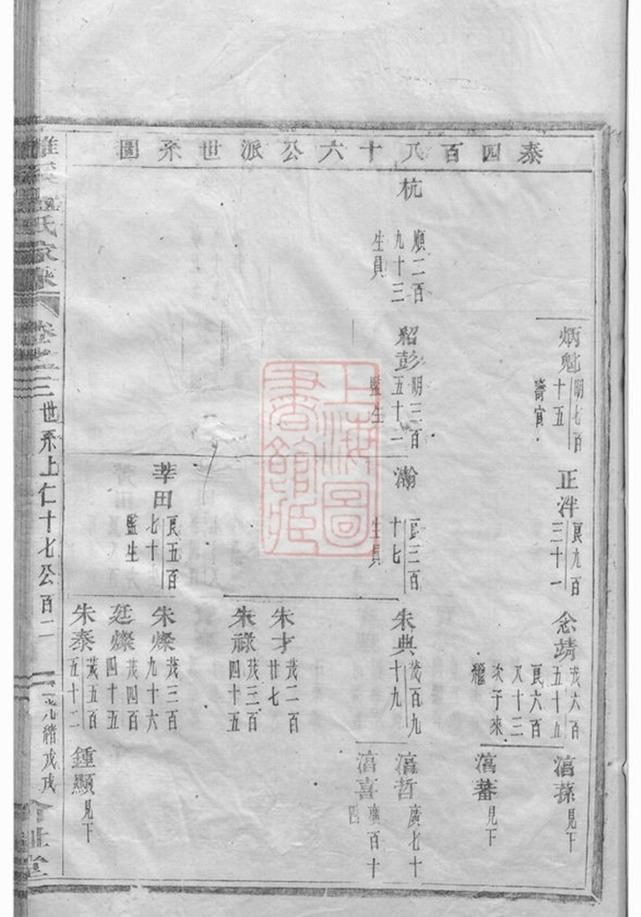 泰四百八十六公派世系圖
炳魁
明七百
十五
寄寅
正泮
良九百
三十一
念靖
茂六百
五十五
良六百
又十三
次子來
繼
滈蓀
見下
滈蕃
見下
杭
順二百
九十三
生員
紹彭
明三百
五十一
監生
瀚
良三百
十七
生員
朱典
茂百九
十九
滈哲
廣七十
滈喜
廣百十
四
朱才
茂二百
廿七
朱祿
茂三百
四十五
莘田
良五百
七十
監生
朱燦
茂三百
九十六
廷燦
茂四百
四十五
朱泰
茂五百
五十二
鍾顯
見下
氏家
卷之三
世系上仁十七公
百二
光緒戊戌
堂
上海圖
書館藏